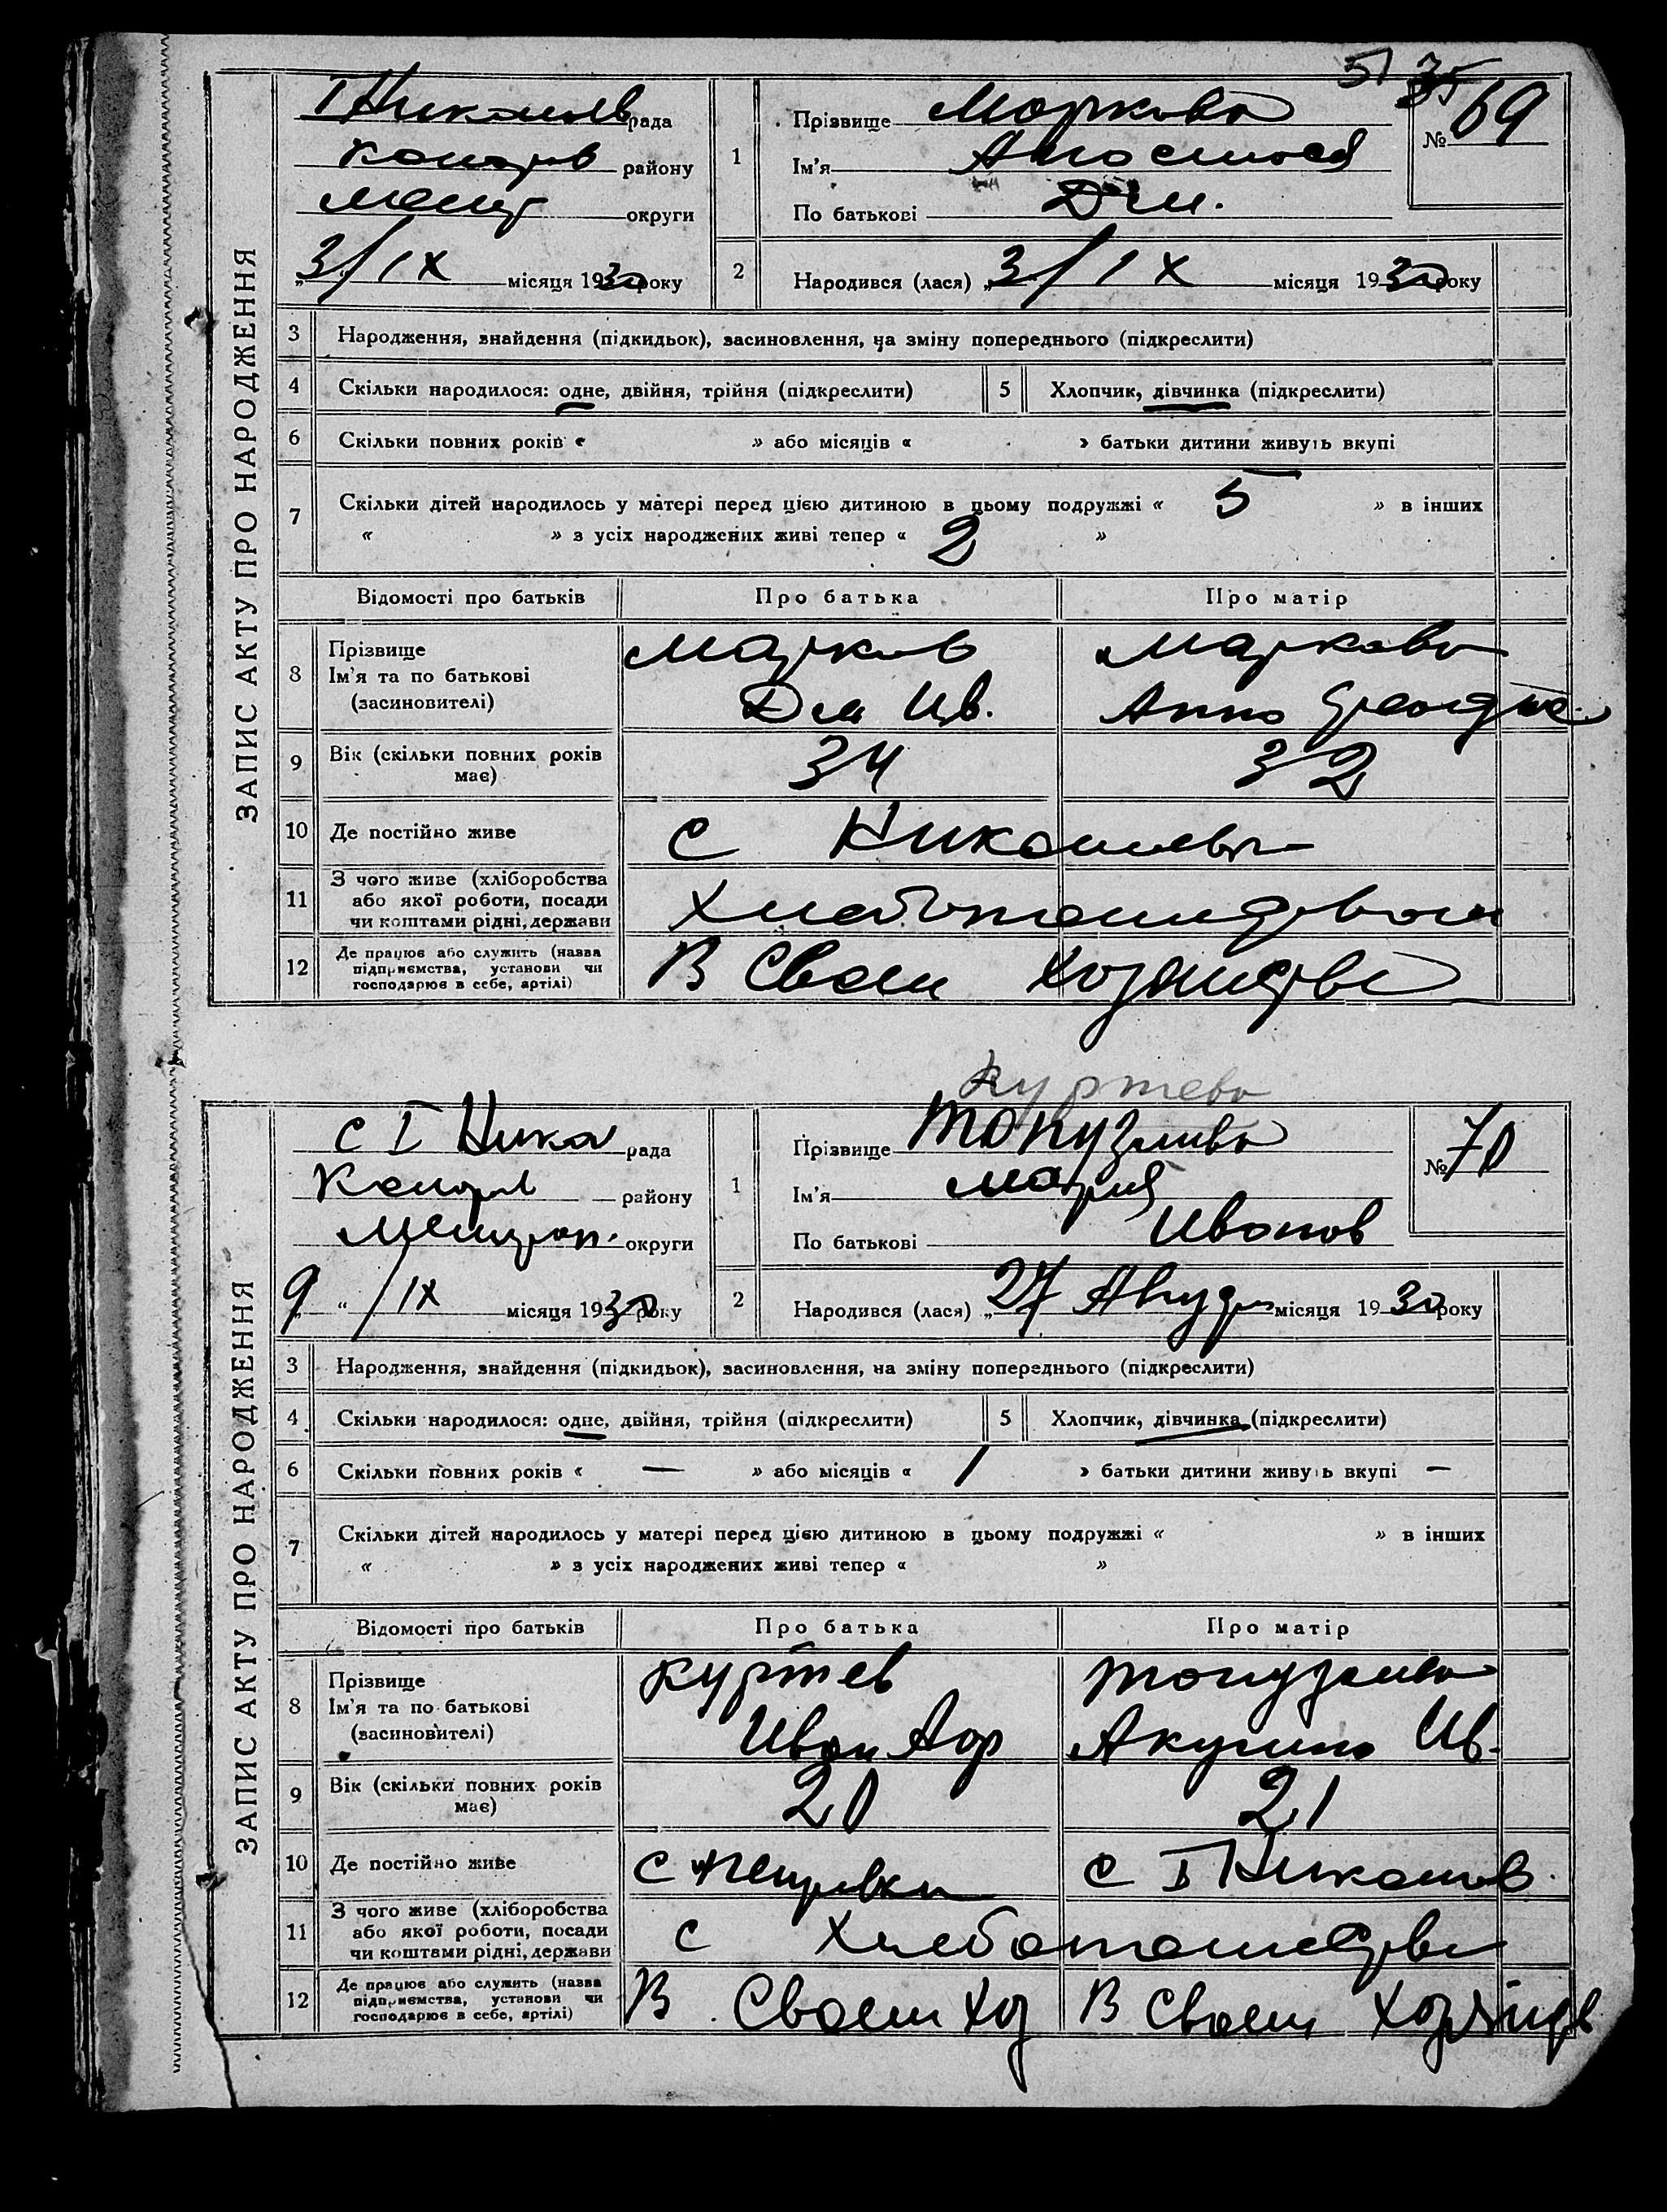 51 35
ЗАПИС АКТУ ПРО НАРОДЖЕННЯ
рада
району
округи
3/IX місяця 1930 року
1
Прізвище Маркова
Ім'я
По батькові Дм.
№ 69
2
Народився (лася) „3/IX місяця 1930 року
3 Народження, знайдення (підкидьок), засиновлення, на зміну попереднього (підкреслити)
4 Скільки народилося: одне, двійня, трійня (підкреслити) 5 Хлопчик, дівчинка (підкреслити)
6 Скільки повних років « » або місяців « » батьки дитини живуть вкупі
7 Скільки дітей народилось у матері перед цією дитиною в цьому подружжі « 5 » в інших
« » з усіх народжених живі тепер « 2 »
Відомості про батьків Про батька Про матір
8 Прізвище Марков Маркова
Ім'я та по батькові
(засиновителі) Дм Ив. Анна
9 Вік (скільки повних років має) 34 32
10 Де постійно живе С
11 З чого живе (хліборобства
або якої роботи, посади
чи коштами рідні, держави
12 Де працює або служить (назва
підприємства, установи чи
господарює в себе, артілі) В Своем
Куртева
ЗАПИС АКТУ ПРО НАРОДЖЕННЯ
с I Нико рада
району
округи
9 “ /IX місяця 1930 року
1
Прізвище Топузлива
Ім'я Мария
По батькові Иванов
№ 70
2
Народився (лася) „27 Августа місяця 1930 року
3 Народження, знайдення (підкидьок), засиновлення, на зміну попереднього (підкреслити)
4 Скільки народилося: одне, двійня, трійня (підкреслити) 5 Хлопчик, дівчинка (підкреслити)
6 Скільки повних років « — » або місяців « 1 » батьки дитини живуть вкупі —
7 Скільки дітей народилось у матері перед цією дитиною в цьому подружжі « » в інших
« » з усіх народжених живі тепер « »
Відомості про батьків Про батька Про матір
8 Прізвище Куртев
Ім'я та по батькові
(засиновителі) Иван Акулина Ив.
9 Вік (скільки повних років має) 20 21
10 Де постійно живе С Петровки С
11 З чого живе (хліборобства
або якої роботи, посади
чи коштами рідні, держави С
12 Де працює або служить (назва
підприємства, установи чи
господарює в себе, артілі) В Своем Хоз В Своем